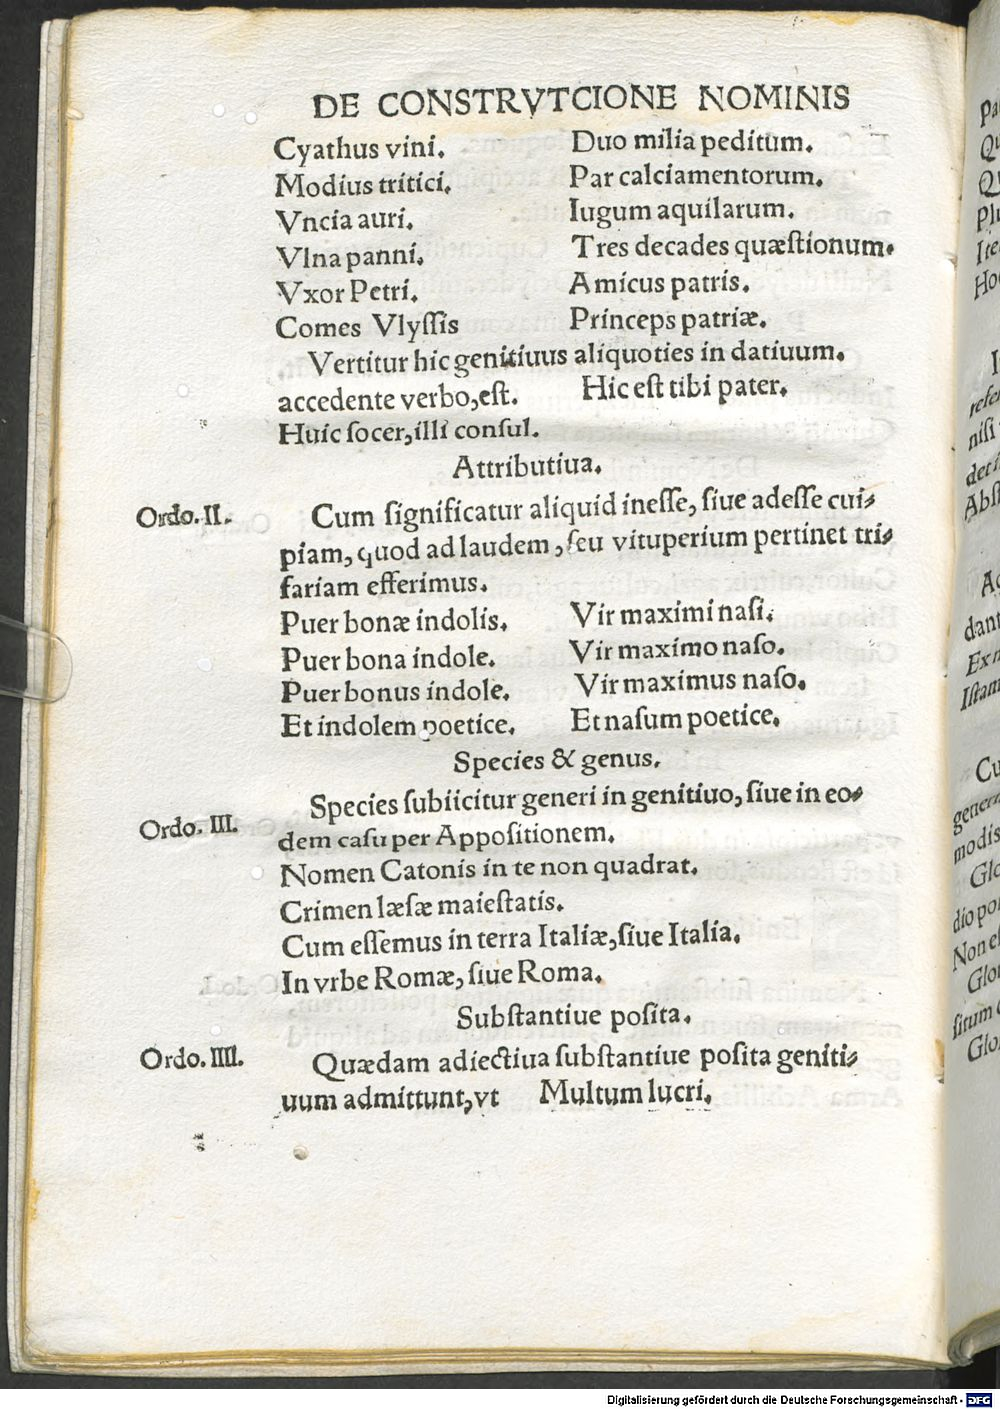 DE CONSTRVTCIONE NOMINIS
Cyathus vini. Duo milia peditum.
Modius tritici. Par calciamentorum.
Vncia auri. Iugum aquilarum.
Vlna panni. Tres decades quæstionum.
Vxor Petri. Amicus patris.
Comes Vlyſſis Princeps patriæ.
Vertitur hic genitiuus aliquoties in datiuum.
accedente verbo, eſt. Hic eſt tibi pater.
Huic ſocer, illi conſul.
Attributiua.
Ordo. II. Cum ſignificatur aliquid ineſſe, ſiue adeſſe cui-
piam, quod ad laudem, ſeu vituperium pertinet tri-
fariam efferimus.
Puer bonæ indolis. Vir maximi naſi.
Puer bona indole. Vir maximo naſo.
Puer bonus indole. Vir maximus naſo.
Et indolem poetice. Et naſum poetice.
Species & genus.
Ordo. III. Species ſubiicitur generi in genitiuo, ſiue in eo-
dem caſu per Appoſitionem.
Nomen Catonis in te non quadrat.
Crimen læſæ maieſtatis.
Cum eſſemus in terra Italiæ, ſiue Italia.
In vrbe Romæ, ſiue Roma.
Subſtantiue poſita.
Ordo. IIII. Quædam adiectiua ſubſtantiue poſita geniti-
uum admittunt, vt Multum lucri.
Digitalisierung gefördert durch die Deutsche Forschungsgemeinschaft - DFG